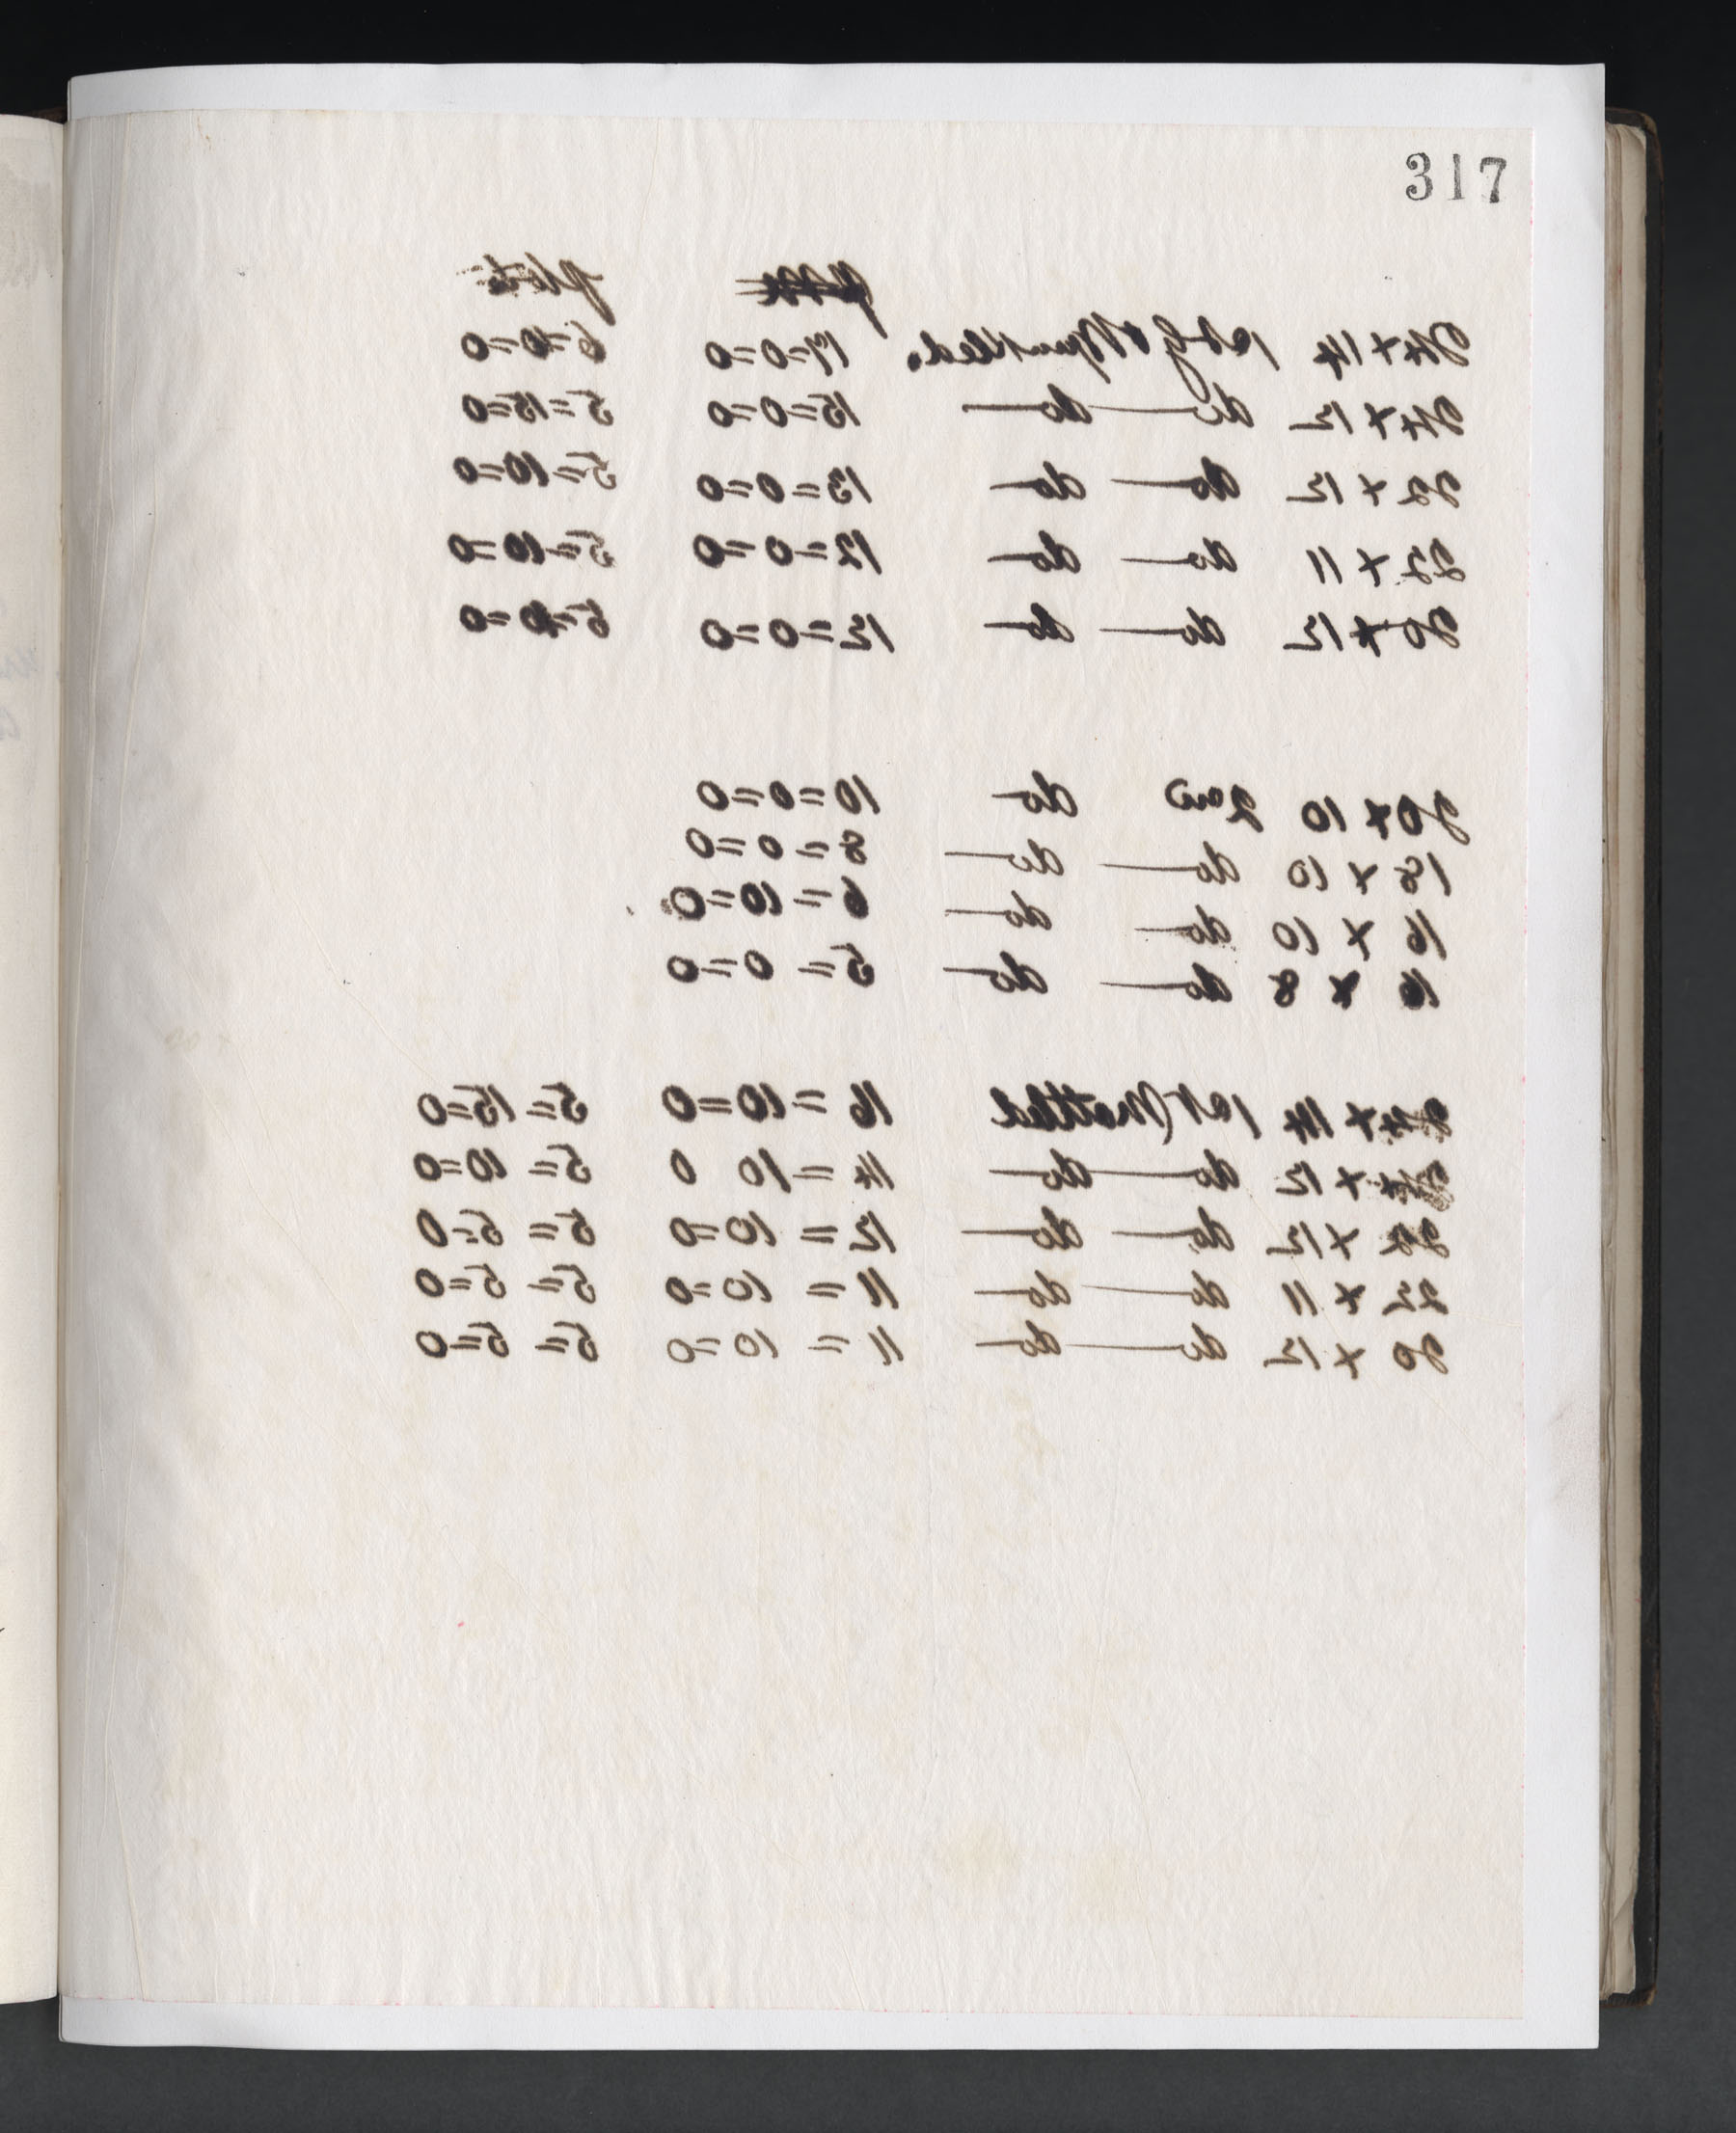 317
24 × 14 1st g Spantled. 17=0=0 6=0=0
24 × 12 do do 15=0=0 5=15=0
22 × 12 do do 13=0=0 5=10=0
22 × 11 do do 12=0=0 5=10=0
20 × 12 do do 12=0=0 5=10=0
20 × 10 2nd do 10=0=0
18 × 10 do do 8=0=0
16 × 10 do do 6=10=0
16 × 8 do do 5=0=0
24 × 14 1st Mottled 16=10=0 5=15=0
24 × 12 do do 14=10 0 5=10=0
22 × 12 do do 12=10=0 5=5=0
22 × 11 do do 11=10=0 5=5=0
20 × 12 do do 11=10=0 5=5=0